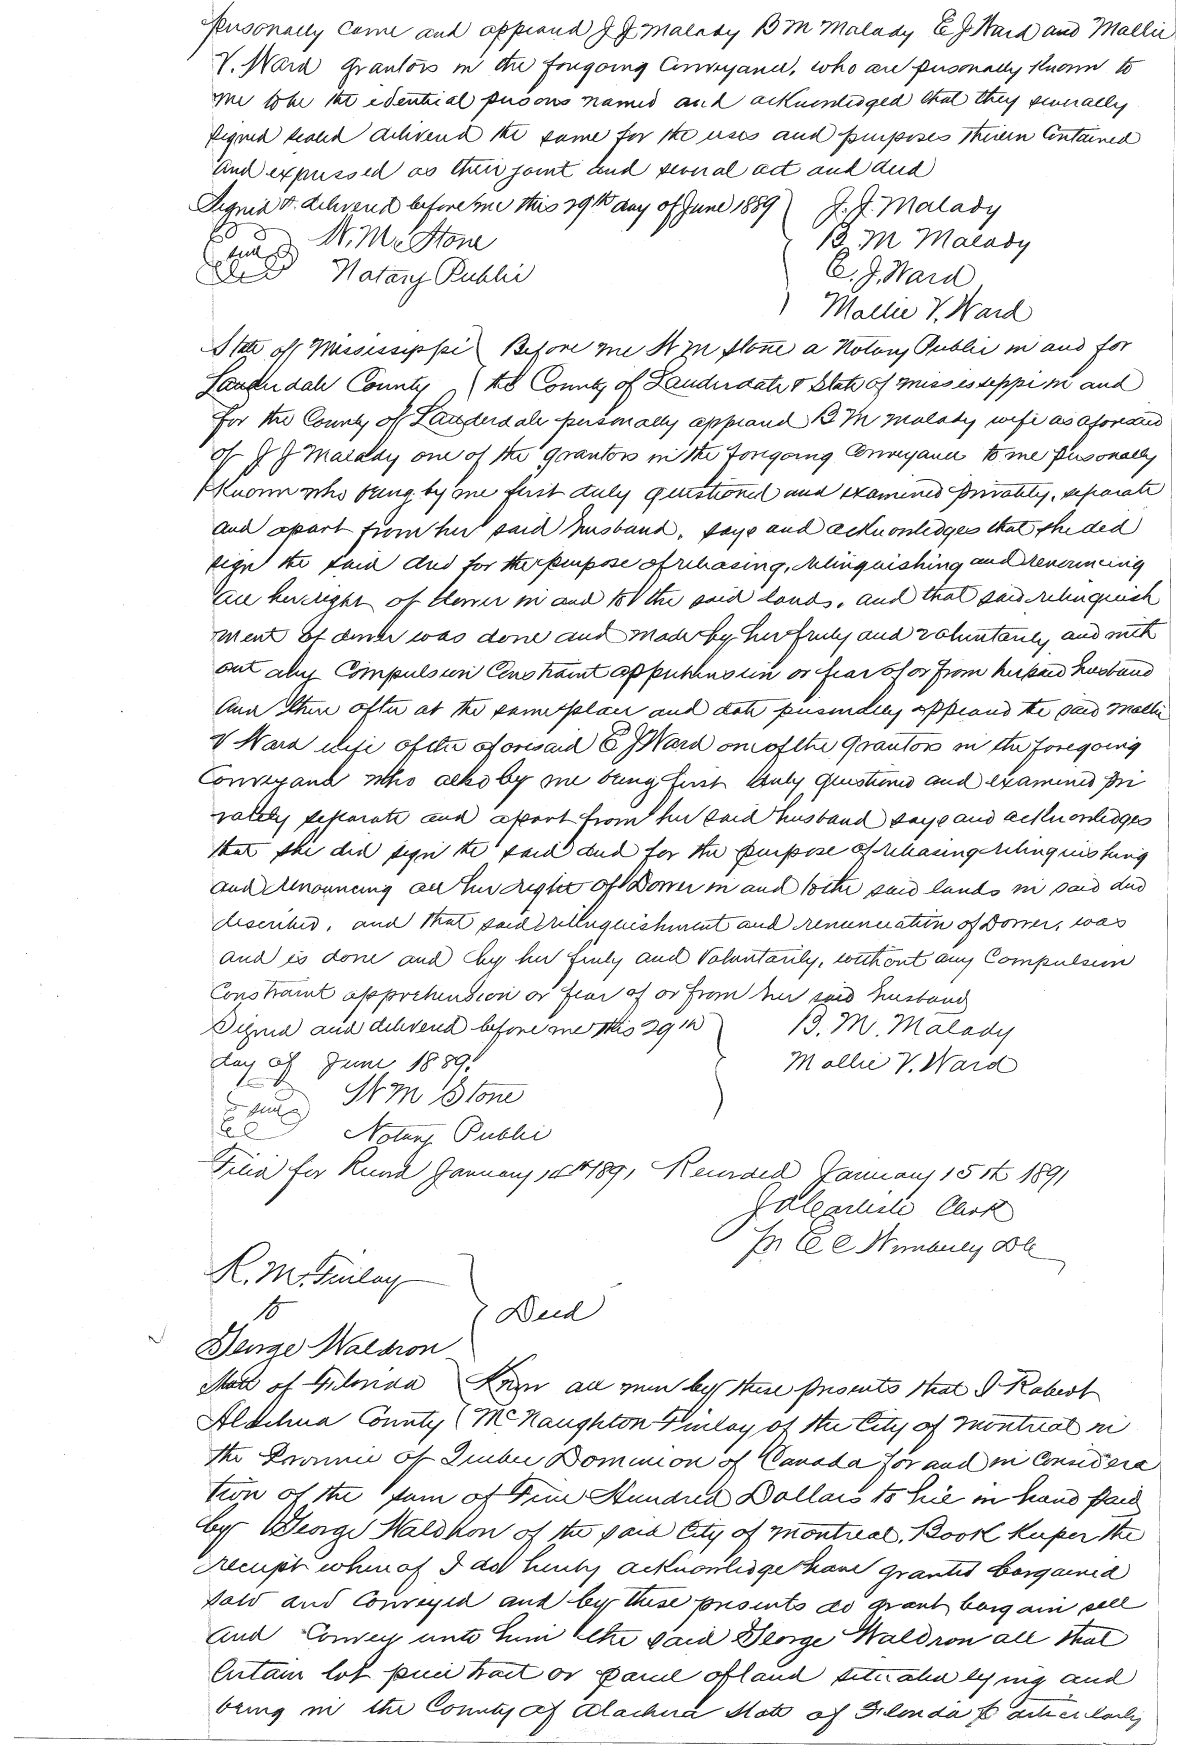 personally came and appeared J J Malady B M Malady E J Ward and Mallie
V. Ward grantors in the foregoing Conveyance, who are personally Known to
me to be the idential persons named and acknowledged that they severally
signed sealed delivered the same for the uses and purposes therein Contained
and expressed as their joint and several act and deed
Signed & delivered before me this 29th day of June 1889 J. J. Malady
W. M. Stone B. M Malady
seal Notary Public E. J. Ward
Mallie V. Ward
State of Mississippi Before me W M Stone a Notary Public in and for
Lauderdale County the County of Lauderdale & State of Mississippi in and
for the County of Lauderdale personally appeared B M Malady wife as aforesaid
of J J Malady one of the grantors in the foregoing Conveyance to me personally
Known who being by me first duly questioned and examined privately, separate
and apart from her said husband, says and acknowledges that she did
sign the said deed for the purpose of releasing, relinquishing and renouncing
all her right of dower in and to the said lands, and that said relinquish
ment of dower was done and made by her freely and voluntarily and with
out any Compulsion Constraint apprehension or fear of or from her said husband
And there after at the same place and date personally appeared the said Mallie
V Ward wife of the aforesaid E J Ward one of the grantors in the foregoing
Conveyance who also by me being first duly questioned and examined pri
vately separate and apart from her said husband says and acknowledges
that she did sign the said deed for the purpose of releasing relinquishing
and renouncing all her right of Dower in and to the said lands in said deed
described, and that said relinquishment and renunciation of Dower, was
and is done and by her freely and Voluntarily, without any Compulsion
Constraint apprehension or fear of or from her said husband
Signed and delivered before me this 29th B. M. Malady
day of June 1889. Mallie V. Ward
W M Stone
seal Notary Public
Filed for Record January 14th 1891 Recorded January 15th 1891
J A Carlisle Clerk
Pr E C Wimberly DC
R. Mc. Finlay
to Deed
George Waldron
State of Florida Know all men by these presents that I Robert
Alachua County McNaughton Finlay of the City of Montreal in
the Province of Quebec Dominion of Canada for and in Considera
tion of the sum of Five Hundred Dollars to me in hand paid
by George Waldron of the said City of Montreal, Book Keeper the
receipt whereof I do hereby acknowledge have granted bargained
sold and Conveyed and by these presents do grant bargain sell
and Convey unto him the said George Waldron all that
Certain lot piece tract or parcel of land situated lying and
being in the County of Alachua State of Florida & particularly